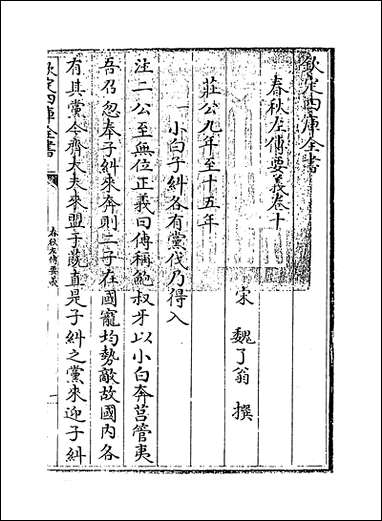 欽定四庫全書
春秋左傳要義卷十
宋 魏了翁 撰
莊公九年至十五年
一 小白子糾各有黨伐乃得入
注二公至無位正義曰傳稱鮑叔牙以小白奔莒管夷
吾召忽奉子糾來奔則二子在國寵均勢敵故國內各
有其黨令齊大夫來盟于蔇直是子糾之黨來迎子糾
欽定四庫全書
春秋左傳要義
一